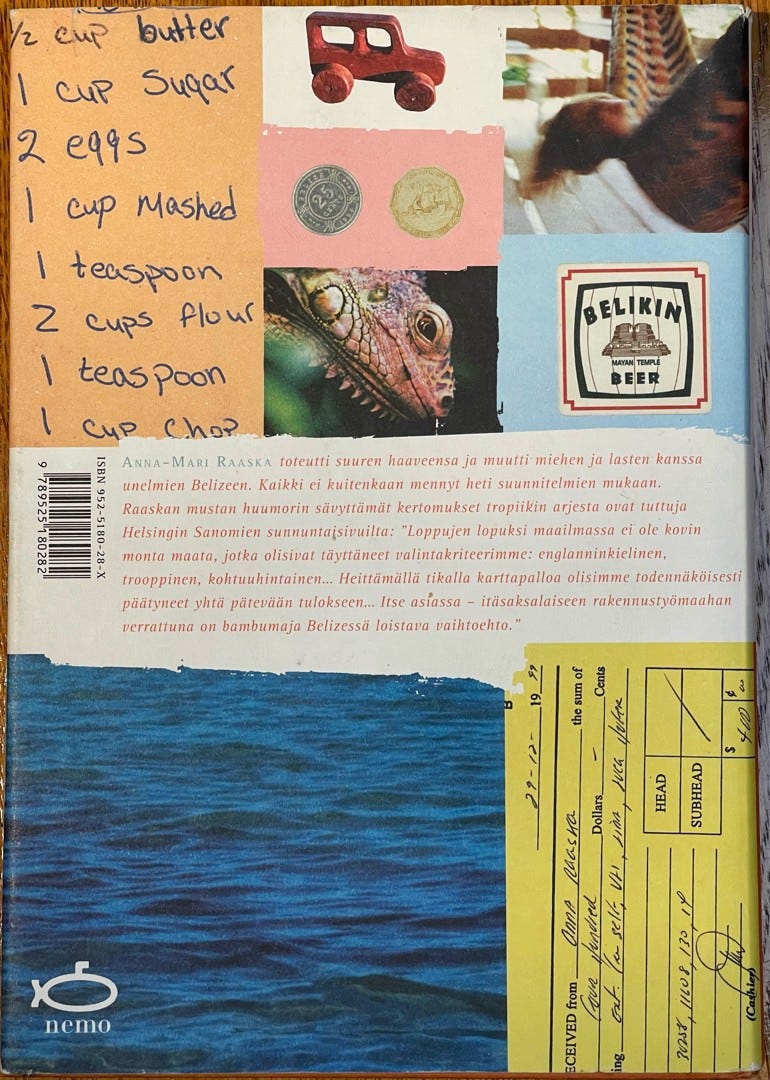 ½ cup butter
1 cup Sugar
2 eggs
1 cup Mashed
1 teaspoon
2 cups flour
1 teaspoon
1 cup Chop
25
CENTS
BELIKIN
MAYAN TEMPLE
BEER
ISBN 952-5180-28-X
9 789525 180282
ANNA-MARI RAASKA toteutti suuren haaveensa ja muutti miehen ja lasten kanssa
unelmien Belizeen. Kaikki ei kuitenkaan mennyt heti suunnitelmien mukaan.
Raaskan mustan huumorin sävyttämät kertomukset tropiikin arjesta ovat tuttuja
Helsingin Sanomien sunnuntaisivuilta: "Loppujen lopuksi maailmassa ei ole kovin
monta maata, jotka olisivat täyttäneet valintakriteerimme: englanninkielinen,
trooppinen, kohtuuhintainen... Heittämällä tikalla karttapalloa olisimme todennäköisesti
päätyneet yhtä pätevään tulokseen... Itse asiassa – itäsaksalaiseen rakennustyömaahan
verrattuna on bambumaja Belizessä loistava vaihtoehto."
29-12- 19 99
ECEIVED from Anna Raaska the sum of
Four hundred Dollars – Cents
ing
HEAD
SUBHEAD
$ ¢
400 00
(Cashier)
nemo